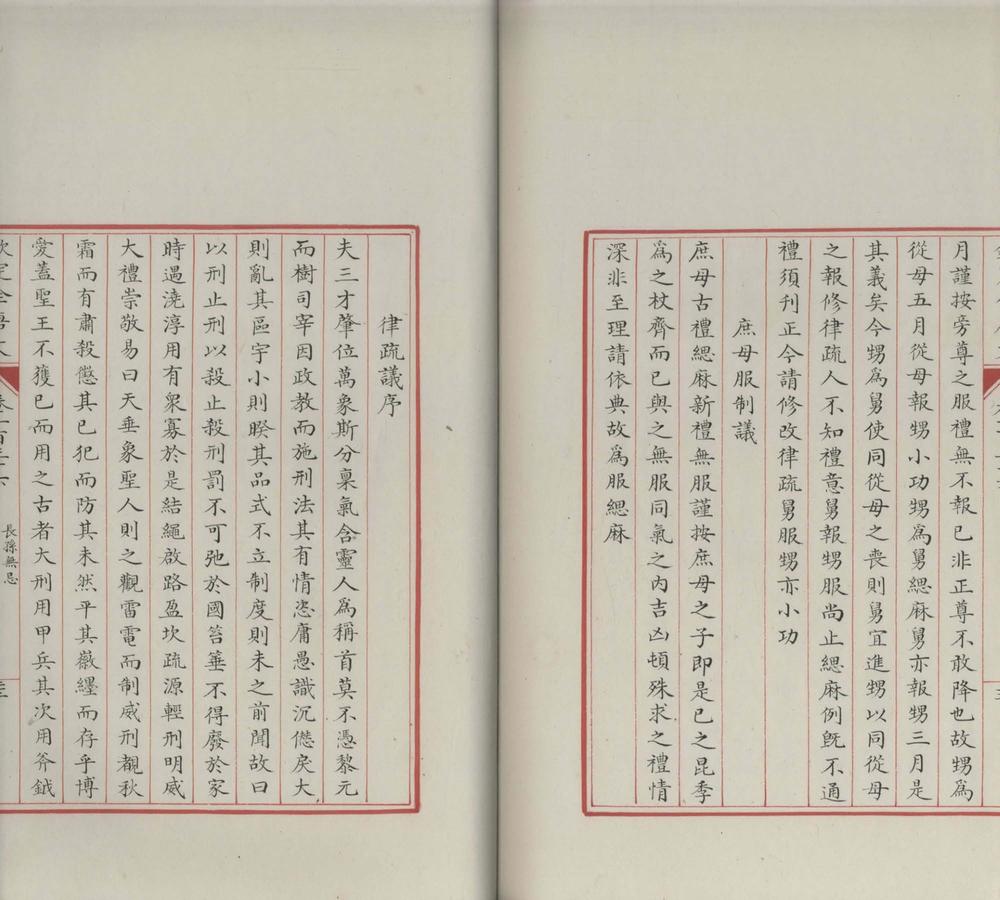 月謹按旁尊之服禮無不報已非正尊不敢降也故甥爲
從母五月從母報甥小功甥爲舅緦麻舅亦報甥三月是
其義矣今甥爲舅使同從母之喪則舅宜進甥以同從母
之報修律疏人不知禮意舅報甥服尚止緦麻例旣不通
禮須刊正今請修改律疏舅服甥亦小功
庶母服制議
庶母古禮緦麻新禮無服謹按庶母之子即是已之昆季
爲之杖齊而已與之無服同氣之內吉凶頓殊求之禮情
深非至理請依典故爲服緦麻
律疏議序
夫三才肇位萬象斯分稟氣含靈人爲稱首莫不憑黎元
而樹司宰因政教而施刑法其有情恣庸愚識沉僁戾大
則亂其區宇小則睽其品式不立制度則未之前聞故曰
以刑止刑以殺止殺刑罰不可弛於國笞箠不得廢於家
時遇澆淳用有衆寡於是結繩啟路盈坎疏源輕刑明威
大禮崇敬易曰天垂象聖人則之觀雷電而制威刑覩秋
霜而有肅殺懲其已犯而防其未然平其徽纆而存乎博
愛蓋聖王不獲已而用之古者大刑用甲兵其次用斧鉞
欽定全唐文 卷一百三十六 長孫無忌